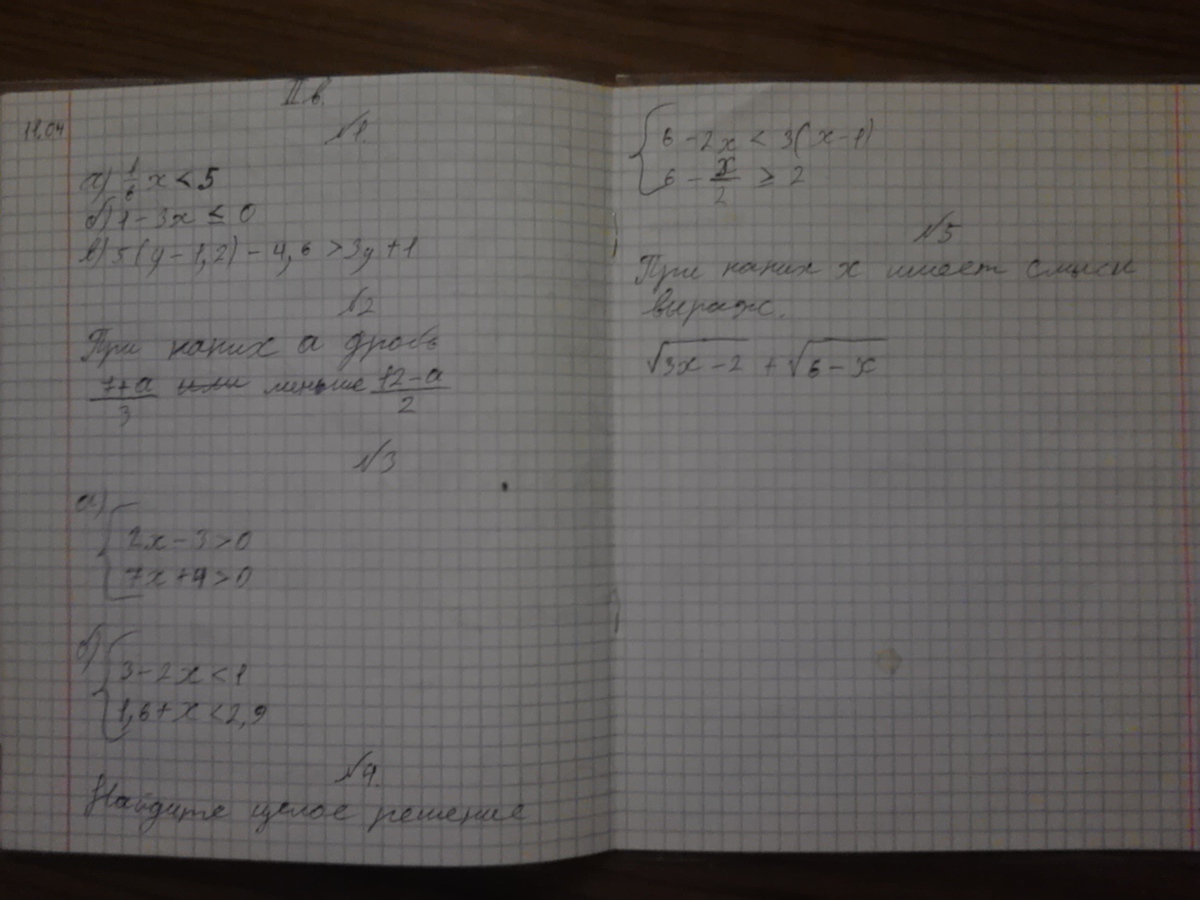 IIв.
11.04
№1.
а) 1/6 x < 5
б) 1 - 3x ≤ 0
в) 5(y - 1,2) - 4,6 > 3y + 1
№2
При каких а дробь
7+a/3 меньше 12-a/2
№3
а)
{ 2x - 3 > 0
7x + 4 > 0
б)
{ 3 - 2x < 1
1,6 + x < 2,9
№4.
Найдите целое решение
{ 6 - 2x < 3(x - 1)
6 - x/2 ≥ 2
№5
При каких х имеет смысл
выраж.
√3x - 2 + √6 - x